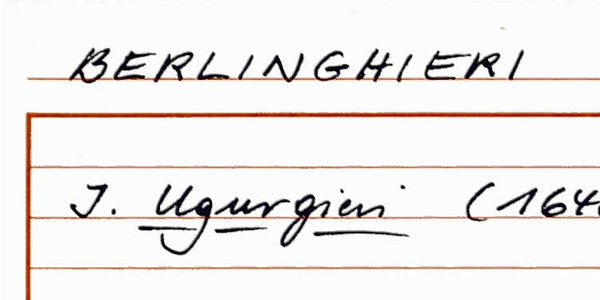 BERLINGHIERI
J. Ugurgieri (164